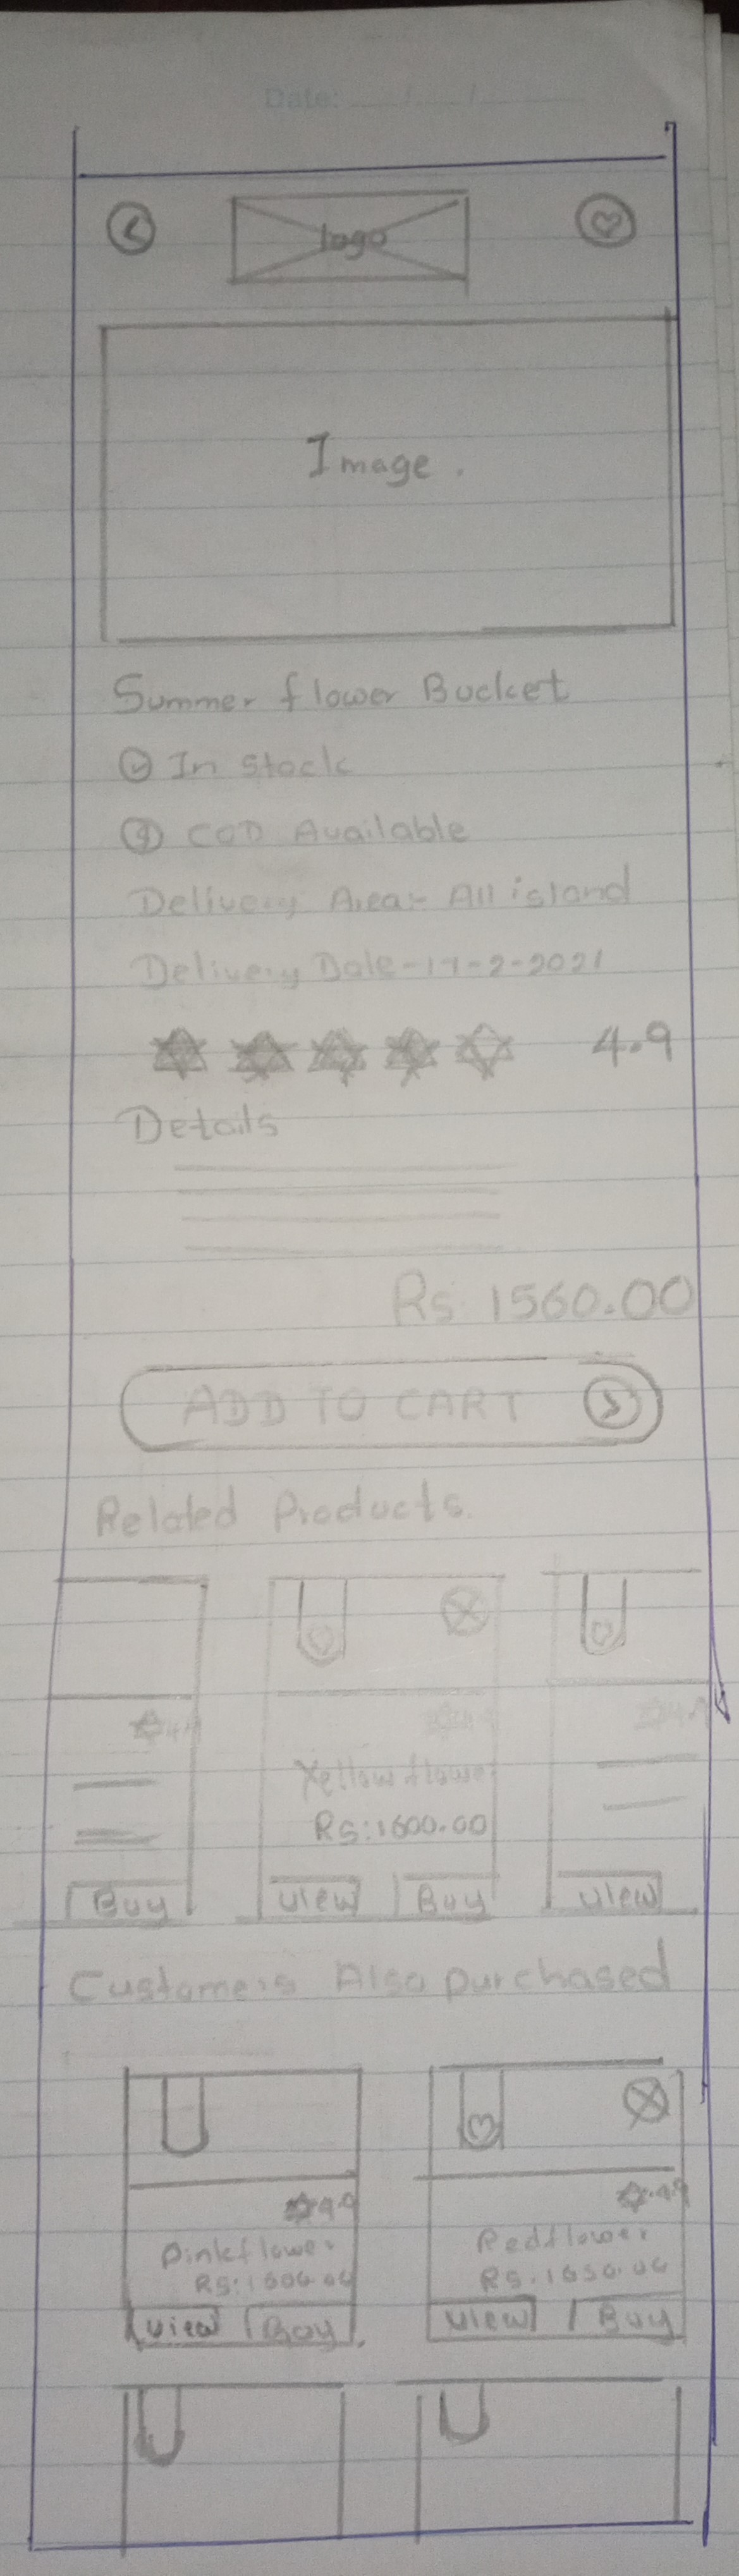 Date: __/__/____
logo
Image.
Summer flower Bucket
In stock
COD Available
Delivery Area:- All island
Delivery Date-17-2-2021
4.9
Details
Rs. 1560.00
ADD TO CART
Related Products.
Yellow flower
Rs:1600.00
Buy
View Buy
View
Customers Also purchased
4.9
4.9
Pinkflower
Redflower
View Buy
View Buy